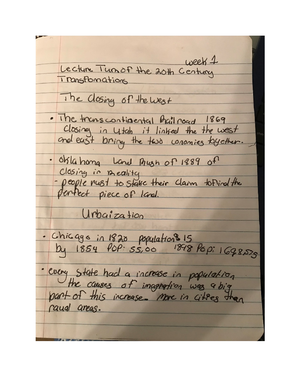 week 1
Lecture Turn of the 20th Century
Transfomations
The Closing of the West
• The transcontinental Railroad 1869
closing in Utah it linked the the west
and east bring the two conomies together.
• Oklahoma Land Rush of 1889 of
closing in Reality
- people rust to stake their claim to find the
perfect piece of land.
Urbaization
• Chicago in 1820 population 15
by 1854 Pop: 55,00 1898 Pop:
• every state had a increase in population
the causes of imagration was a big
part of this increase. More in cities then
raural areas.